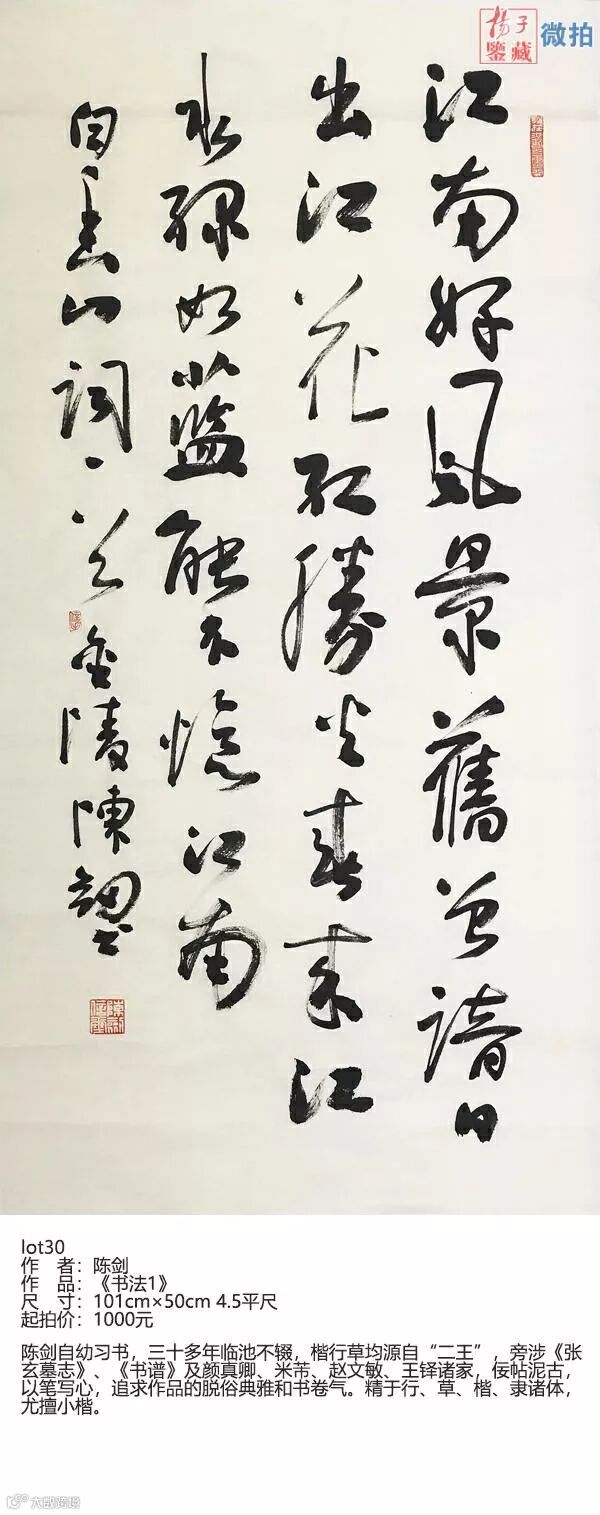 揚子
鑒藏
微拍
江南好風景舊曾諳日
出江花紅勝火春來江
水緑如藍能不憶江南
白香山詞一首 金陵陳劍
lot30
作 者：陈剑
作 品：《书法1》
尺 寸：101cm×50cm 4.5平尺
起拍价：1000元
陈剑自幼习书，三十多年临池不辍，楷行草均源自“二王”，旁涉《张
玄墓志》、《书谱》及颜真卿、米芾、赵文敏、王铎诸家，佞帖泥古，
以笔写心，追求作品的脱俗典雅和书卷气。精于行、草、楷、隶诸体，
尤擅小楷。
大数跨境